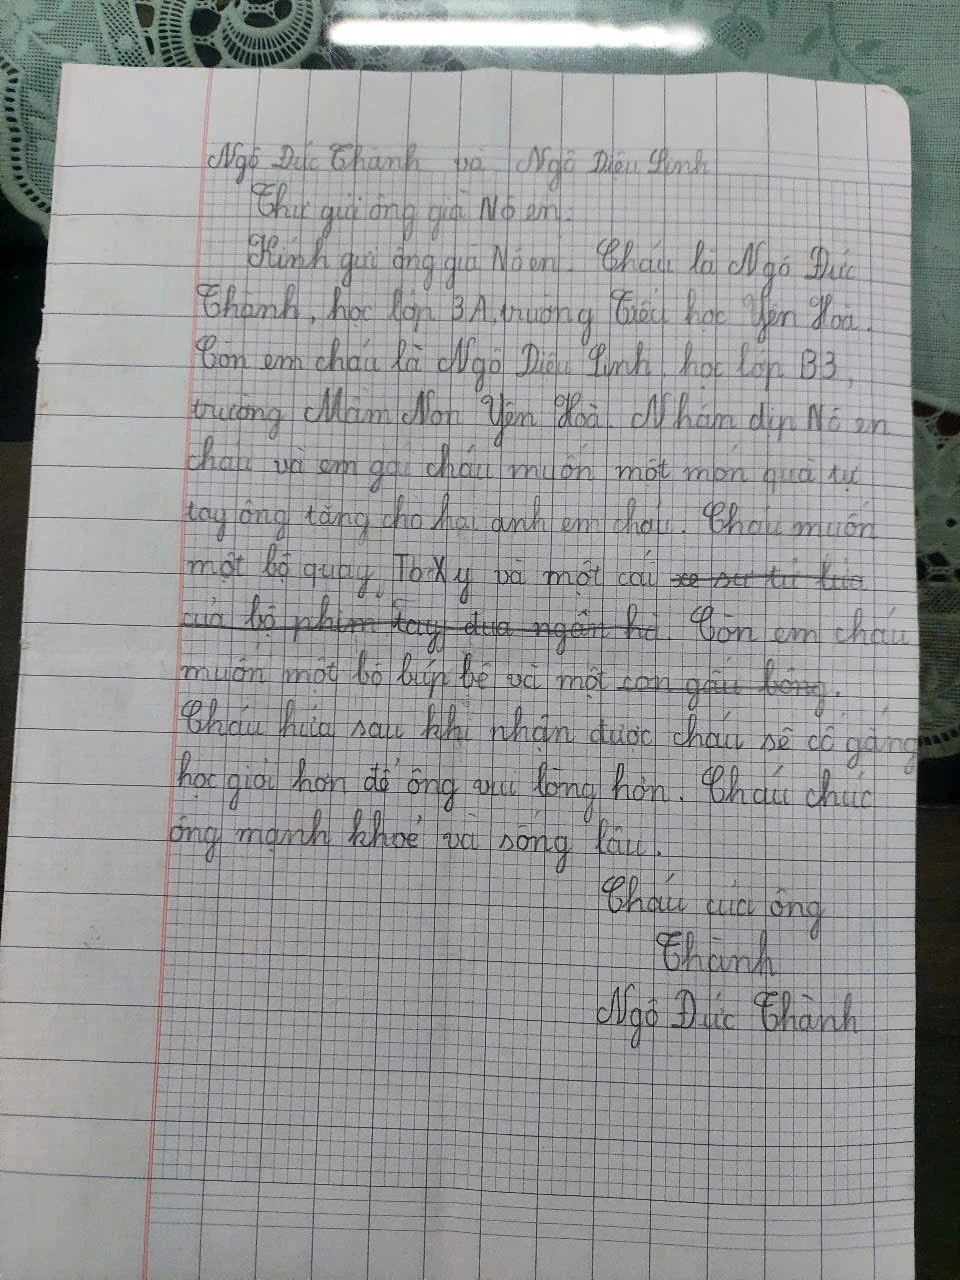 Ngô Đức Thành và Ngô Diệu Linh
Thư gửi ông già Nô en.
Kính gửi ông già Nô en. Cháu là Ngô Đức
Thành, học lớp 3A, trường Tiểu học Yên Hoà.
Còn em cháu là Ngô Diệu Linh, học lớp B3,
trường Mầm Non Yên Hoà. Nhâm dịp Nô en
cháu và em gái cháu muốn một món quà tự
tay ông tặng cho hai anh em cháu. Cháu muốn
một bộ quay To-Xy và một cái xe sư tử lửa
của bộ phim tay đua ngân hà. Còn em cháu
muốn một bộ búp bê và một con gấu bông.
Cháu hứa sau khi nhận được cháu sẽ cố gắng
học giỏi hơn để ông vui lòng hơn. Cháu chúc
ông mạnh khoẻ và sống lâu.
Cháu của ông
Thành
Ngô Đức Thành